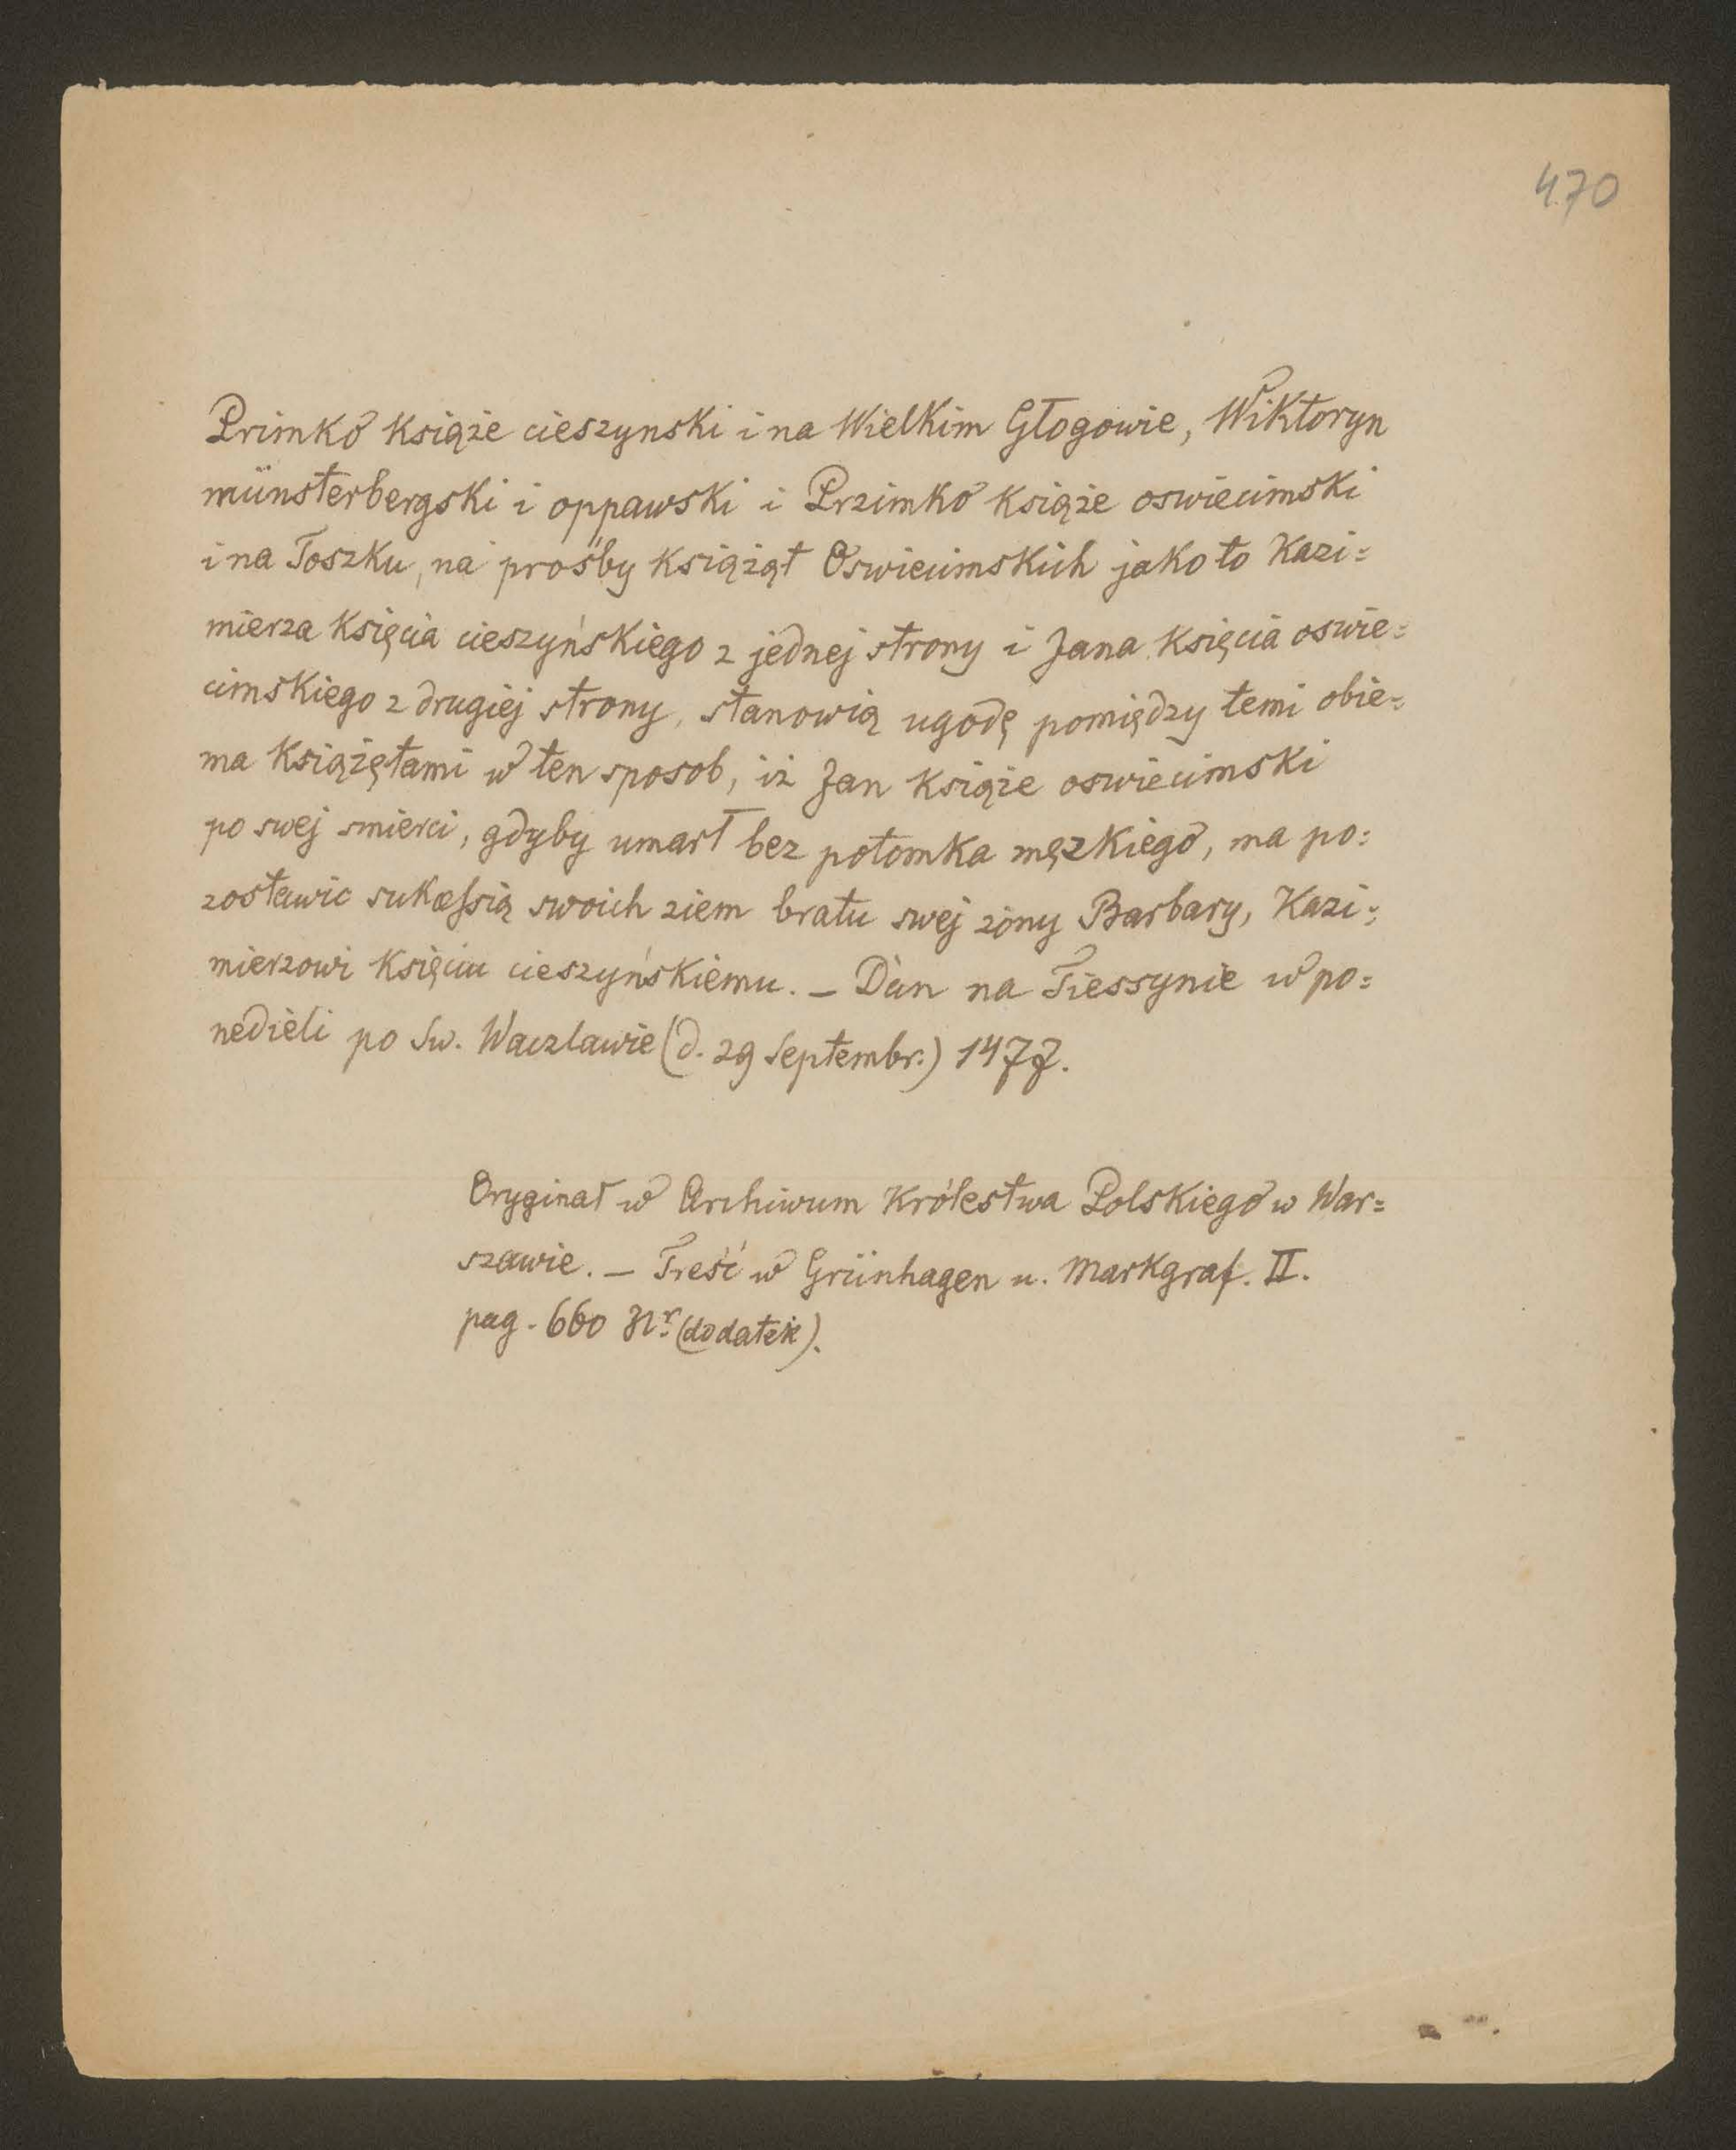 470
Primko książe cieszynski i na Wielkim Głogowie, Wiktoryn
münsterbergski i oppawski i Przimko książe oswiecimski
i na Toszku, na prośby książąt Oswiecimskich jako to Kazi=
mierza księcia cieszyńskiego z jednej strony i Jana księcia oswie=
cimskiego z drugiej strony, stanowią ugodę pomiędzy temi obie=
ma książętami w ten sposob, iż Jan książe oswiecimski
po swej smierci, gdyby umarł bez potomka męzkiego, ma po=
zostawic sukcessią swoich ziem bratu swej żony Barbary, Kazi=
mierzowi księciu cieszyńskiemu. – Dan na Tiessynie w po=
nedieli po Sw. Waczlawie (d. 29 Septembr.) 1477.
Oryginał w Archiwum Królestwa Polskiego w War=
szawie. – Treść w Grünhagen u. Markgraf. II.
pag. 660 Nr. (dodatek).